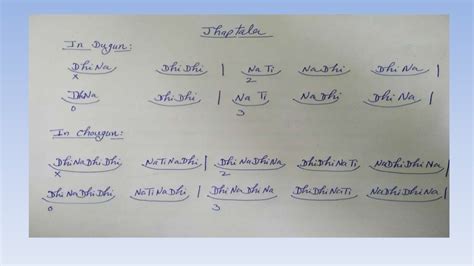 Jhaptala
In Dugun:
DhiNa DhiDhi | NaTi NaDhi DhiNa |
x 2
DhiNa DhiDhi | NaTi NaDhi DhiNa |
0 3
In chougun:
DhiNaDhiDhi NaTiNaDhi | DhiNaDhiNa DhiDhiNaTi NaDhiDhiNa |
x 2
DhiNaDhiDhi NaTiNaDhi | DhiNaDhiNa DhiDhiNaTi NaDhiDhiNa |
0 3